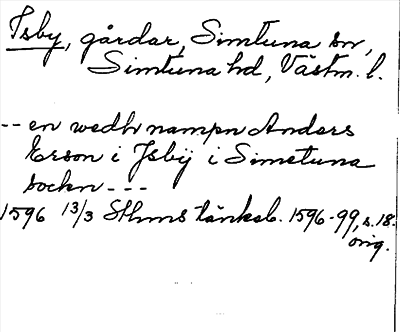 Isby, gårdar, Simtuna sn,
Simtuna hd, Västm. l.
-- en wedh nampn Anders
Erson i Jsbÿ i Simetuna
sockn ---
1596 13/3 Sthms tänkeb. 1596-99, s. 18.
orig.